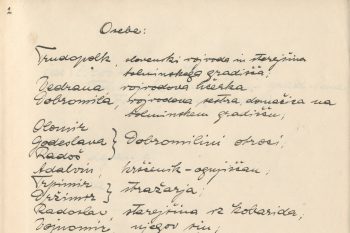 1
Oseba:
Trudopolk, slovenski vojvoda in starejšina
tolminskega gradišča;
Vedrana, vojvodova hčerka
Dobromila, vojvodova sestra, domačica na
tolminskem gradišču;
Olomir
Godeslava } Dobromilini otroci;
Radoš
Adalvin, krščenik-ognjiščan;
Trpimir
Držimir } stražarja;
Radoslav, starejšina iz Kobarida;
Vojnomir, njegov sin;